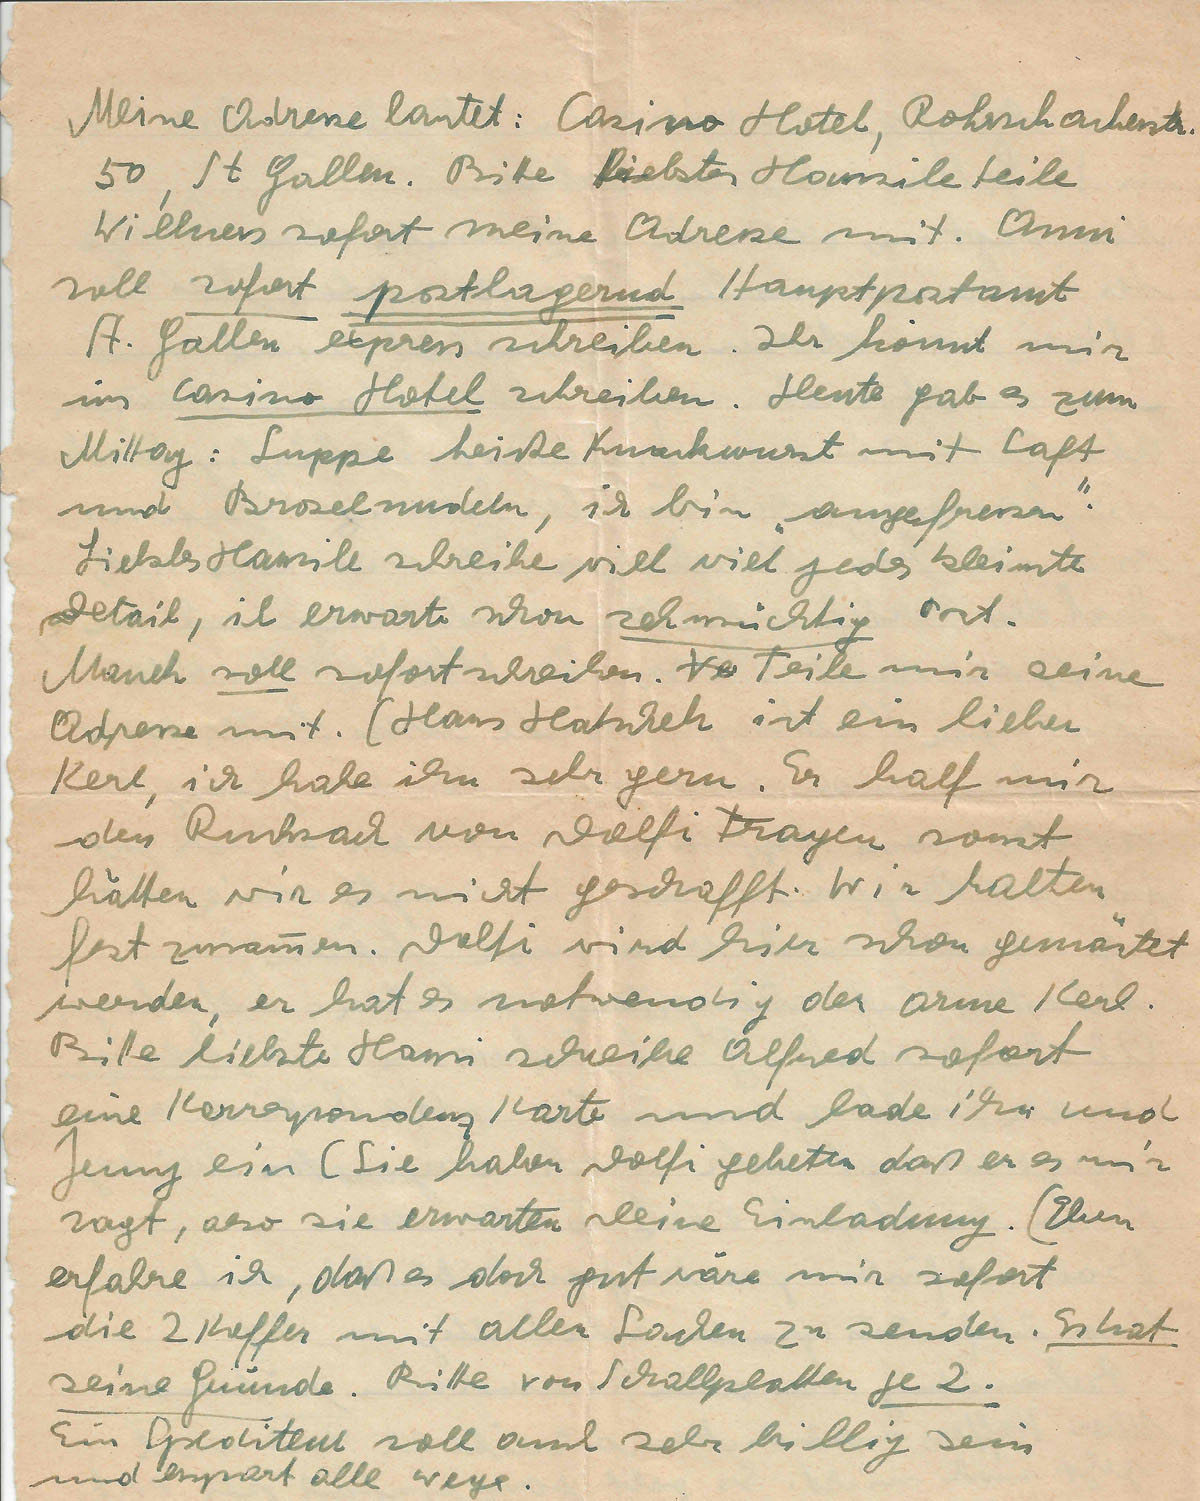 Meine Adresse lautet: Casino Hotel, Rohrschacherstr.
50, St Gallen. Bitte liebstes Hansile teile
Willners sofort meine Adresse mit. Anni
soll sofort postlagernd Hauptpostamt
St. Gallen express schreiben. Ihr könnt mir
ins Casino Hotel schreiben. Heute gab es zum
Mittag: Suppe heiße Knackwurst mit Saft
und Broselnudeln, ich bin „angefressen".
Liebstes Hansile schreibe viel viel jedes kleinste
Detail, ich erwarte schon sehnsüchtig Post.
Manek soll sofort schreiben. Teile mir seine
Adresse mit. (Hans Hatschek ist ein lieber
Kerl, ich habe ihn sehr gern. Er half mir
den Rucksack von Dolfi tragen sonst
hätten wir es nicht geschafft. Wir halten
fest zusam̅en. Dolfi wird hier schon gemästet
werden, er hat es notwendig der arme Kerl.
Bitte liebste Hansi schreibe Alfred sofort
eine Korrespondenz Karte und lade ihn und
Jenny ein (Sie haben Dolfi gebeten daß er es mir
sagt, also sie erwarten deine Einladung. (Eben
erfahre ich, daß es doch gut wäre mir sofort
die 2 Koffer mit allen Sachen zu senden. Es hat
seine Gründe. Bitte von Schallplatten je 2.
Ein Spediteur soll auch sehr billig sein
und erspart alle Wege.